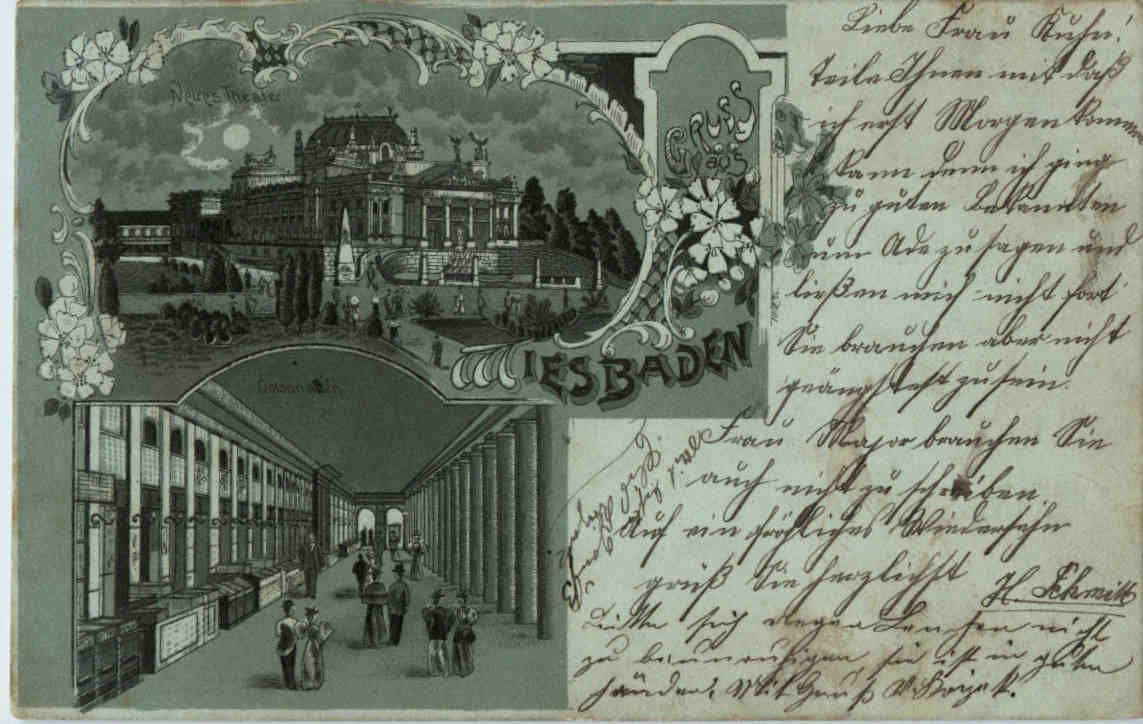 Neues Theater
GRUSS
aus
WIESBADEN
Liebe Frau Kuhn!
teile Ihnen mit daß
ich erst Morgen kommen
kann denn ich ging
zu guten Bekannten
um Ade zu sagen und
ließen mich nicht fort
Sie brauchen aber nicht
geängstest zu sein.
Frau Major brauchen Sie
auch nicht zu schreiben.
Auf ein fröhliches Wiedersehn
grüß Sie herzlichst
H. Schmitt
Bitte sich wegen Lenchen nicht
zu beunruhigen, sie ist in guten
Händen. Mit Gruß